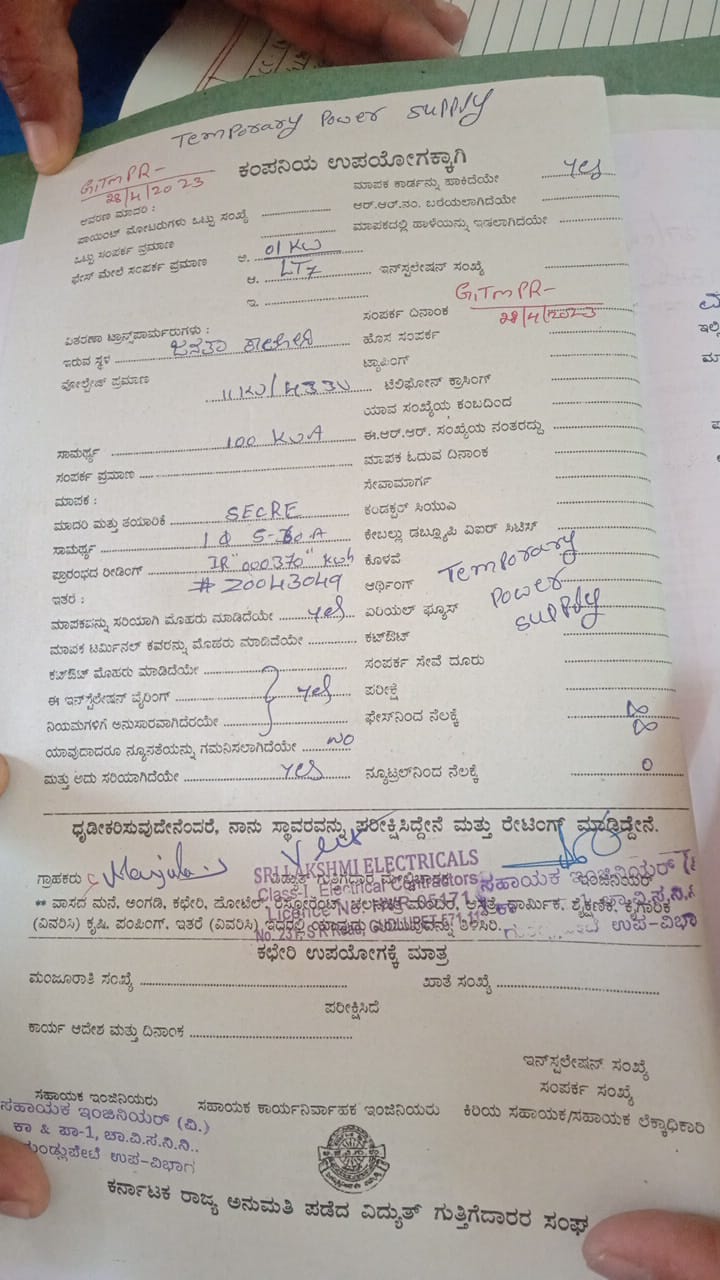 Temporary Power Supply
GiTMPR-
28/4/2023
ಕಂಪನಿಯ ಉಪಯೋಗಕ್ಕಾಗಿ
ಆವರಣ ಮಾದರಿ :
ಮಾಪಕ ಕಾರ್ಡನ್ನು ಹಾಕಿದೆಯೇ yes
ಪಾಯಿಂಟ್ ಮೋಟರುಗಳು ಒಟ್ಟು ಸಂಖ್ಯೆ
ಆರ್.ಆರ್.ನಂ. ಬರೆಯಲಾಗಿದೆಯೇ
ಒಟ್ಟು ಸಂಪರ್ಕ ಪ್ರಮಾಣ
ಮಾಪಕದಲ್ಲಿ ಹಾಳೆಯನ್ನು ಇಡಲಾಗಿದೆಯೇ
ಫೇಸ್ ಮೇಲೆ ಸಂಪರ್ಕ ಪ್ರಮಾಣ ಅ. 01 KW
ಆ. LT7 ಇನ್‌ಸ್ಟಲೇಷನ್ ಸಂಖ್ಯೆ
ಇ.
ಸಂಪರ್ಕ ದಿನಾಂಕ GiTMPR-
28/4/2023
ವಿತರಣಾ ಟ್ರಾನ್ಸ್‌ಫಾರ್ಮರುಗಳು :
ಇರುವ ಸ್ಥಳ ಜನತಾ ಕಾಲೋನಿ ಹೊಸ ಸಂಪರ್ಕ
ಟ್ಯಾಪಿಂಗ್
ವೋಲ್ಟೇಜ್ ಪ್ರಮಾಣ 11KV/433V ಟೆಲಿಫೋನ್ ಕ್ರಾಸಿಂಗ್
ಯಾವ ಸಂಖ್ಯೆಯ ಕಂಬದಿಂದ
ಸಾಮರ್ಥ್ಯ 100 KVA ಈ.ಆರ್.ಆರ್. ಸಂಖ್ಯೆಯ ನಂತರದ್ದು
ಸಂಪರ್ಕ ಪ್ರಮಾಣ ಮಾಪಕ ಓದುವ ದಿನಾಂಕ
ಮಾಪಕ : ಸೇವಾಮಾರ್ಗ
ಮಾದರಿ ಮತ್ತು ತಯಾರಿಕೆ SECRE ಕಂಡಕ್ಟರ್ ಸಿಯುವಿ
ಸಾಮರ್ಥ್ಯ 1Φ 5-30A ಕೇಬಲ್ಲು ಡಬ್ಲ್ಯೂಪಿ ಏಐರ್ ಸಿಟಿಸ್
ಪ್ರಾರಂಭದ ರೀಡಿಂಗ್ IR "000370" Kwh ಕೊಳವೆ
ಇತರೆ : #20043049 ಅರ್ಥಿಂಗ್ Temporary
ಮಾಪಕವನ್ನು ಸರಿಯಾಗಿ ಮೊಹರು ಮಾಡಿದೆಯೇ yes ಏರಿಯಲ್ ಫ್ಯೂಸ್ Power
ಮಾಪಕ ಟರ್ಮಿನಲ್ ಕವರನ್ನು ಮೊಹರು ಮಾಡಿದೆಯೇ ಕಟ್‌ಔಟ್ supply
ಕಟ್‌ಔಟ್ ಮೊಹರು ಮಾಡಿದೆಯೇ ಸಂಪರ್ಕ ಸೇವೆ ದೂರು
ಈ ಇನ್‌ಸ್ಟಲೇಷನ್ ವೈರಿಂಗ್ yes ಪರೀಕ್ಷೆ
ನಿಯಮಗಳಿಗೆ ಅನುಸಾರವಾಗಿದೆಯೇ ಫೇಸ್‌ನಿಂದ ನೆಲಕ್ಕೆ ∞
∞
ಯಾವುದಾದರೂ ನ್ಯೂನತೆಯನ್ನು ಗಮನಿಸಲಾಗಿದೆಯೇ NO
ಮತ್ತು ಅದು ಸರಿಯಾಗಿದೆಯೇ yes ನ್ಯೂಟ್ರಲ್‌ನಿಂದ ನೆಲಕ್ಕೆ 0
ಧೃಡೀಕರಿಸುವುದೇನೆಂದರೆ, ನಾನು ಸ್ಥಾವರವನ್ನು ಪರೀಕ್ಷಿಸಿದ್ದೇನೆ ಮತ್ತು ರೇಟಿಂಗ್ ಮಾಡಿದ್ದೇನೆ.
ಗ್ರಾಹಕರು ವಿದ್ಯುತ್ ಗುತ್ತಿಗೆದಾರ ಇಂಜಿನಿಯರ್
SRI LAKSHMI ELECTRICALS
Class-I, Electrical Contractors
ಸಹಾಯಕ ಇಂಜಿನಿಯರ್
** ವಾಸದ ಮನೆ, ಅಂಗಡಿ, ಕಛೇರಿ, ಹೋಟೆಲ್, ರೆಸ್ಟೋರೆಂಟ್, ಆಸ್ಪತ್ರೆ, ಧಾರ್ಮಿಕ, ಶೈಕ್ಷಣಿಕ, ಕೈಗಾರಿಕೆ
(ವಿವರಿಸಿ) ಕೃಷಿ, ಪಂಪಿಂಗ್, ಇತರೆ (ವಿವರಿಸಿ) ಇದರಲ್ಲಿ ತಿಳಿಸಿರಿ.
ಉಪ-ವಿಭಾ
ಕಛೇರಿ ಉಪಯೋಗಕ್ಕೆ ಮಾತ್ರ
ಮಂಜೂರಾತಿ ಸಂಖ್ಯೆ ಖಾತೆ ಸಂಖ್ಯೆ
ಪರೀಕ್ಷಿಸಿದೆ
ಕಾರ್ಯ ಆದೇಶ ಮತ್ತು ದಿನಾಂಕ
ಇನ್‌ಸ್ಟಲೇಷನ್ ಸಂಖ್ಯೆ
ಸಂಪರ್ಕ ಸಂಖ್ಯೆ
ಸಹಾಯಕ ಇಂಜಿನಿಯರು ಸಹಾಯಕ ಕಾರ್ಯನಿರ್ವಾಹಕ ಇಂಜಿನಿಯರು ಕಿರಿಯ ಸಹಾಯಕ/ಸಹಾಯಕ ಲೆಕ್ಕಾಧಿಕಾರಿ
ಸಹಾಯಕ ಇಂಜಿನಿಯರ್ (ವಿ.)
ಕಾ & ಪಾ-1, ಚಾ.ವಿ.ಸ.ನಿ.ನಿ..
ಗುಂಡ್ಲುಪೇಟೆ ಉಪ-ವಿಭಾಗ
ಕರ್ನಾಟಕ ರಾಜ್ಯ ಅನುಮತಿ ಪಡೆದ ವಿದ್ಯುತ್ ಗುತ್ತಿಗೆದಾರರ ಸಂಘ